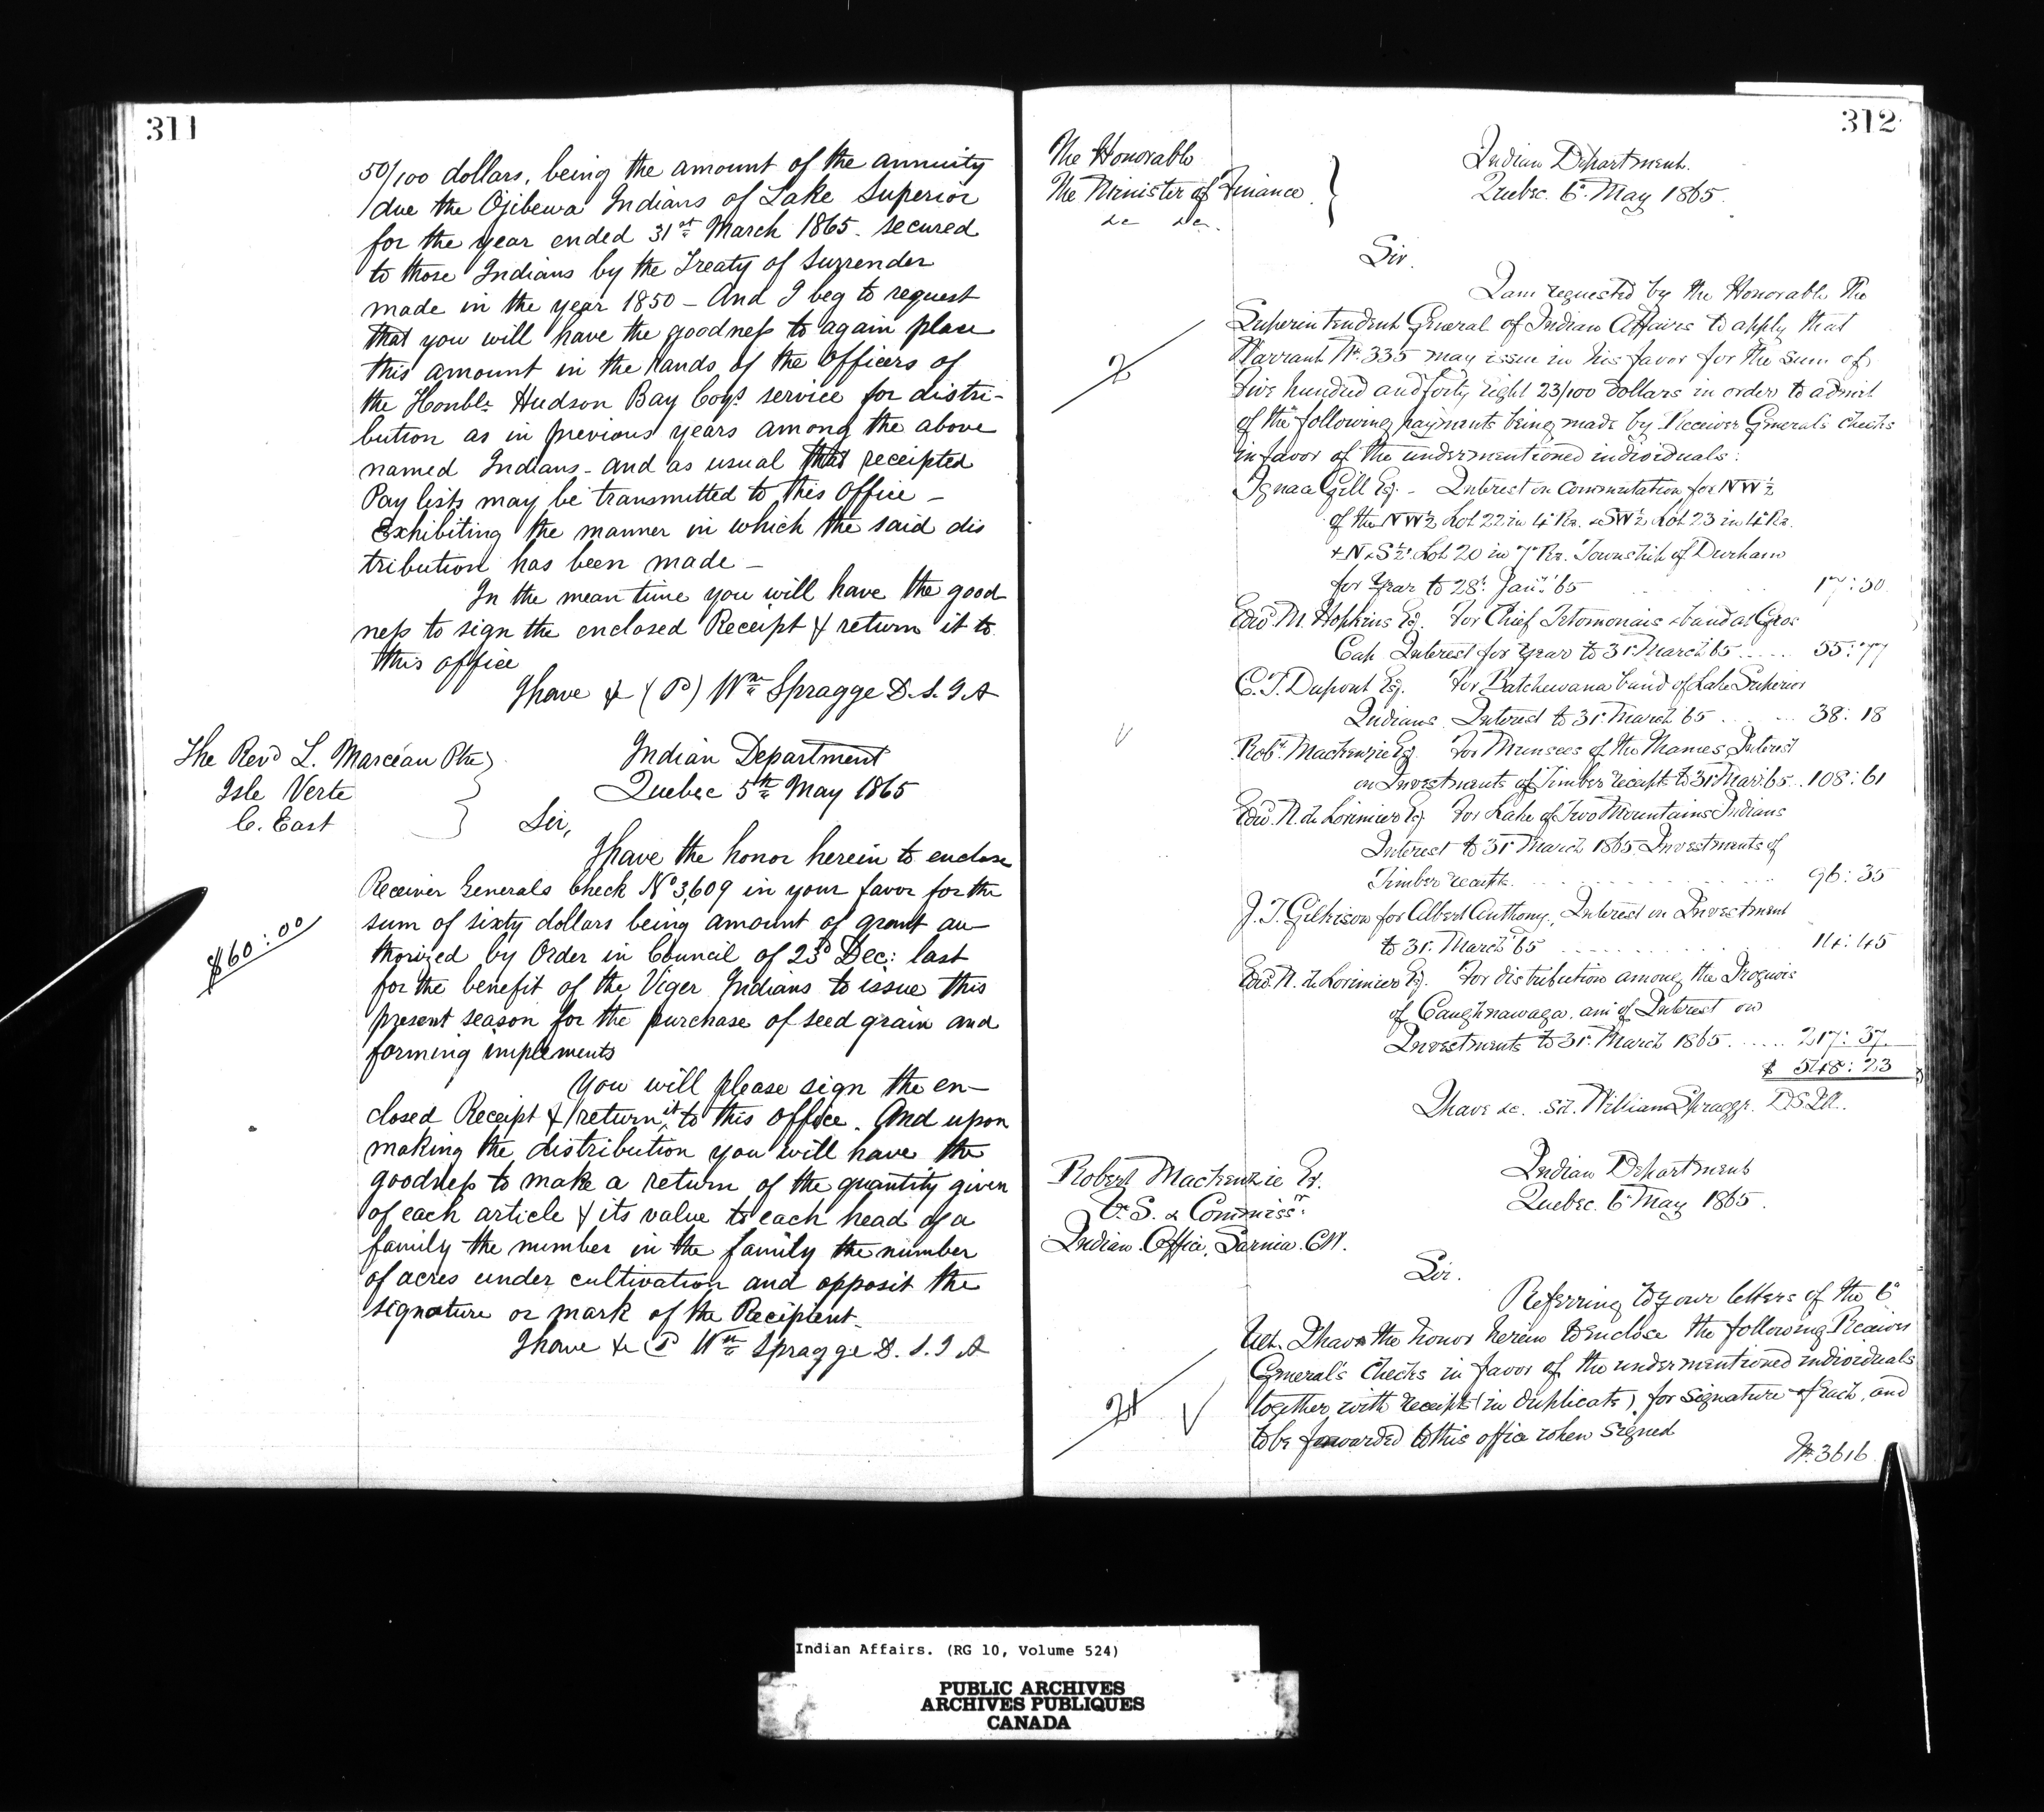 311
50/100 dollars, being the amount of the annuity
due the Ojibewa Indians of Lake Superior
for the year ended 31st March 1865. secured
to those Indians by the Treaty of Surrender
made in the year 1850 - And I beg to request
that you will have the goodness to again place
this amount in the hands of the Officers of
the Honble Hudson Bay Coys service for distri-
bution as in previous years among the above
named Indians - and as usual that receipted
Pay lists may be transmitted to this office -
Exhibiting the manner in which the said dis
tribution has been made -
In the mean time you will have the good
ness to sign the enclosed Receipt & return it to
this office
I have & (S) Wm Spragge D.S.I.A
The Revd L. Marceau Ptre
Isle Verte
C. East
Indian Department
Quebec 5th May 1865
Sir,
I have the honor herein to enclose
Receiver Generals Check No 3,609 in your favor for the
sum of sixty dollars being amount of grant au-
thorized by Order in Council of 23d Dec: last
for the benefit of the Viger Indians to issue this
present season for the purchase of seed grain and
forming implements
$60:00
You will please sign the en-
closed Receipt & return it to this office. And upon
making the distribution you will have the
goodness to make a return of the quantity given
of each article & its value to each head of a
family the number in the family the number
of acres under cultivation and opposit the
signature or mark of the Recipient.
I have &c (S Wm Spragge D.S.I.A
312
The Honorable
The Minister of Finance
&c &c.
Indian Department.
Quebec. 6th May 1865.
Sir.
I am requested by the Honorable The
Superintendent General of Indian Affairs to apply that
Warrant No. 335 may issue in his favor for the sum of
Five hundred and forty eight 23/100 dollars in order to admit
of the following payments being made by Receiver General's Checks
in favor of the undermentioned individuals:
2
Ignace Gill Esq. - Interest on Commutation for NW½
of the NW½ Lot 22 in 4th Ra. & SW½ Lot 23 in 4th Ra.
& N & S½ Lot 20 in 7th Ra. Township of Durham
for Year to 28th Jany '65 17:50
Edwd M. Hopkins Esq. For Chief Totomonais & band at Gros
Cap Interest for year to 31st March '65 ..... 55:77
C. T. Dupont Esq. For Batchewana band of Lake Superior
Indians Interest to 31st March '65 ..... 38:18
Robt. Mackenzie Esq. For Munsees of the Thames Interest
on Investments of Timber receipts to 31st Mar: 65 .. 108:61
Edw. N. de Lorimier Esq. For Lake of Two Mountains Indians
Interest to 31st March 1865 Investments of
Timber receipts. ..... 96:35
J. T. Gilkison for Albert Anthony, Interest on Investment
to 31st March '65 ..... 14:45
Edw. N. de Lorimier Esq. For distribution among the Iroquois
of Caughnawaga. amt of Interest on
Investments to 31st March 1865 ..... 217:37
$ 548:23
I have &c. sd. William Spragge. D.S.I.A.
Robert Mackenzie Esq.
V. S. & Commissr.
Indian Office, Sarnia. C.W.
Indian Department
Quebec. 6th May 1865.
Sir.
Referring to your letters of the 6th
Ult. I have the honor herein to enclose the following Receiver
General's Checks in favor of the undermentioned individuals
together with receipts (in duplicate), for signature of each, and
to be forwarded to this office when signed
No. 3616
Indian Affairs. (RG 10, Volume 524)
PUBLIC ARCHIVES
ARCHIVES PUBLIQUES
CANADA